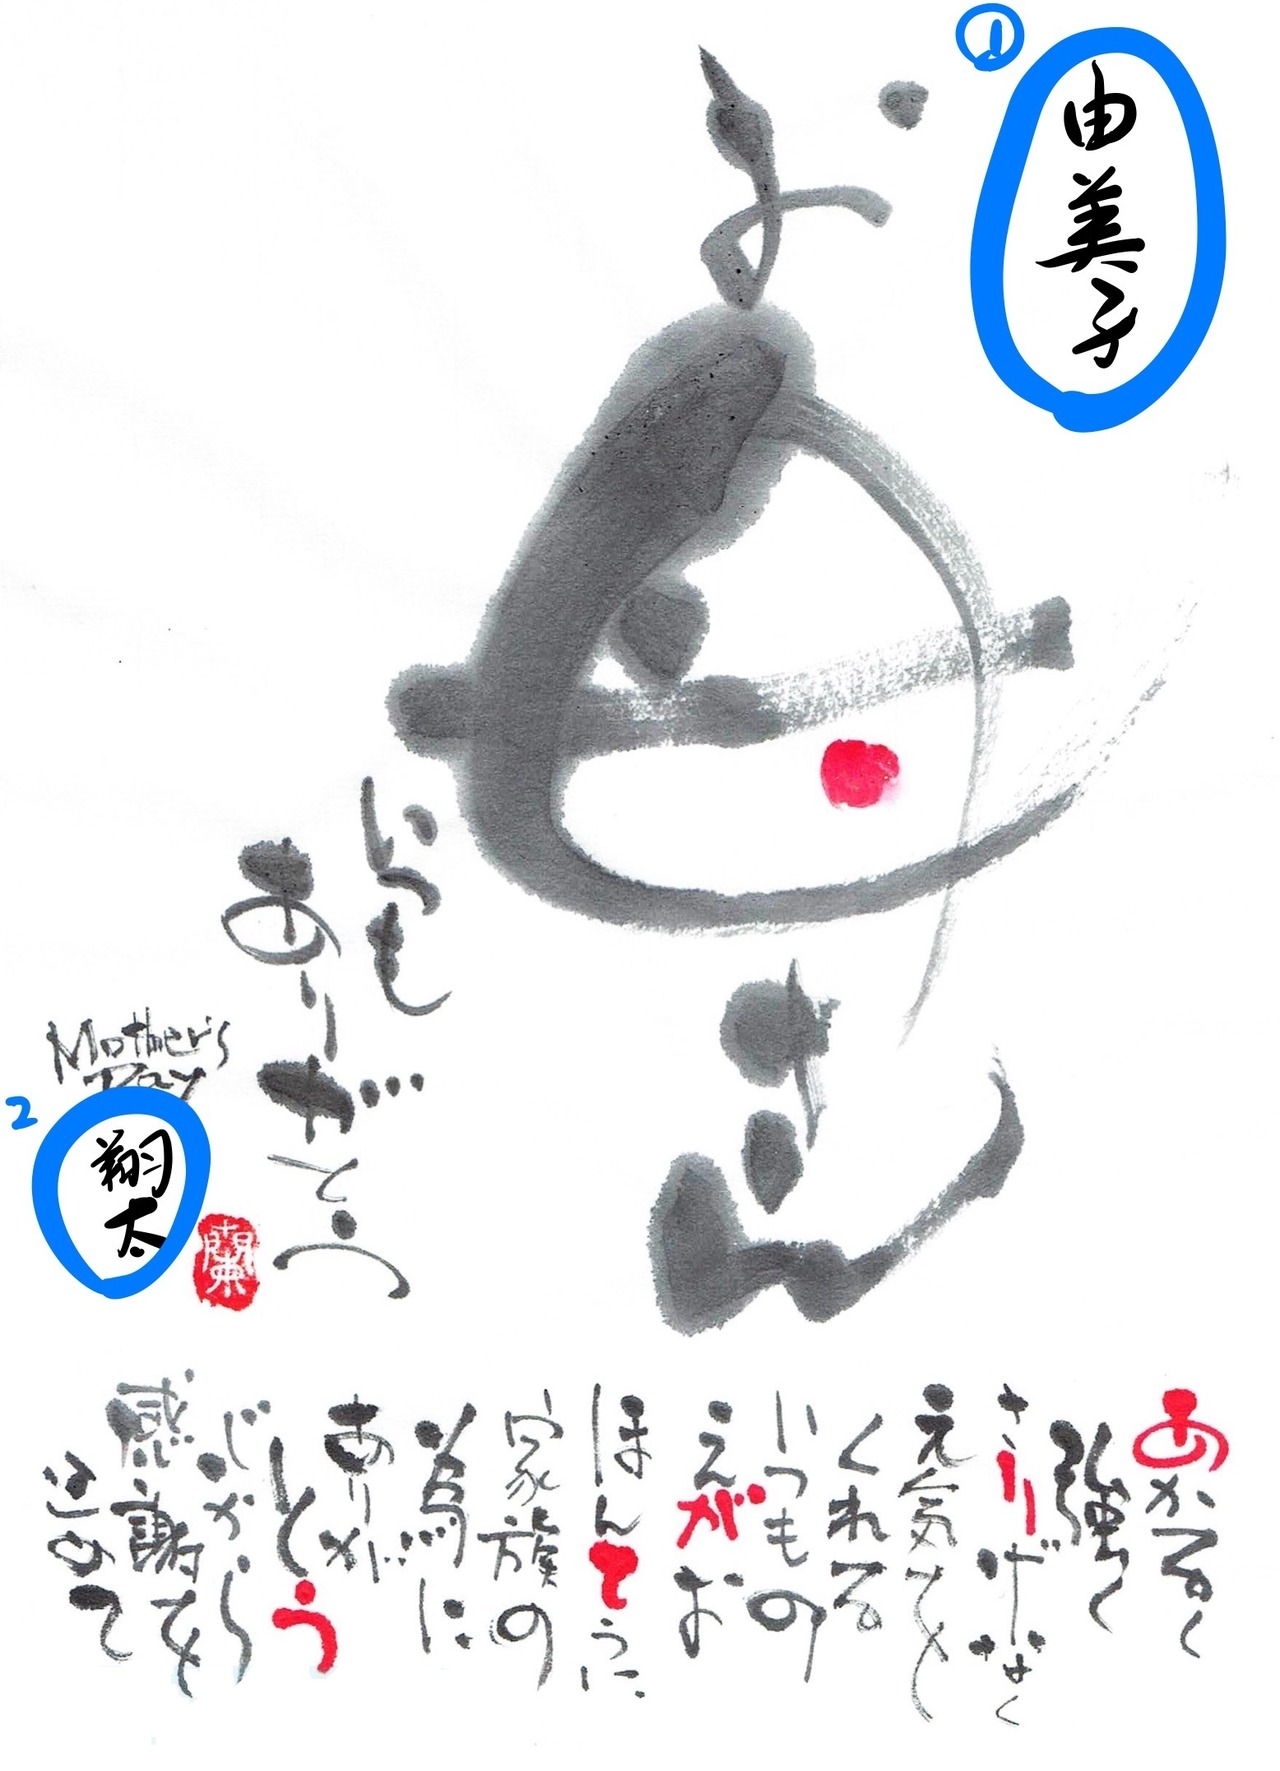 ①
由美子
お母さん
いつも
ありが…
とう
Mother's
Day
2
翔太
蘭
あかるく
強く
さりげなく
元気でと
くれる
いつもの
えがお
ほんとうに
家族の
為に
ありが…
とう
じから
感謝を
込めて